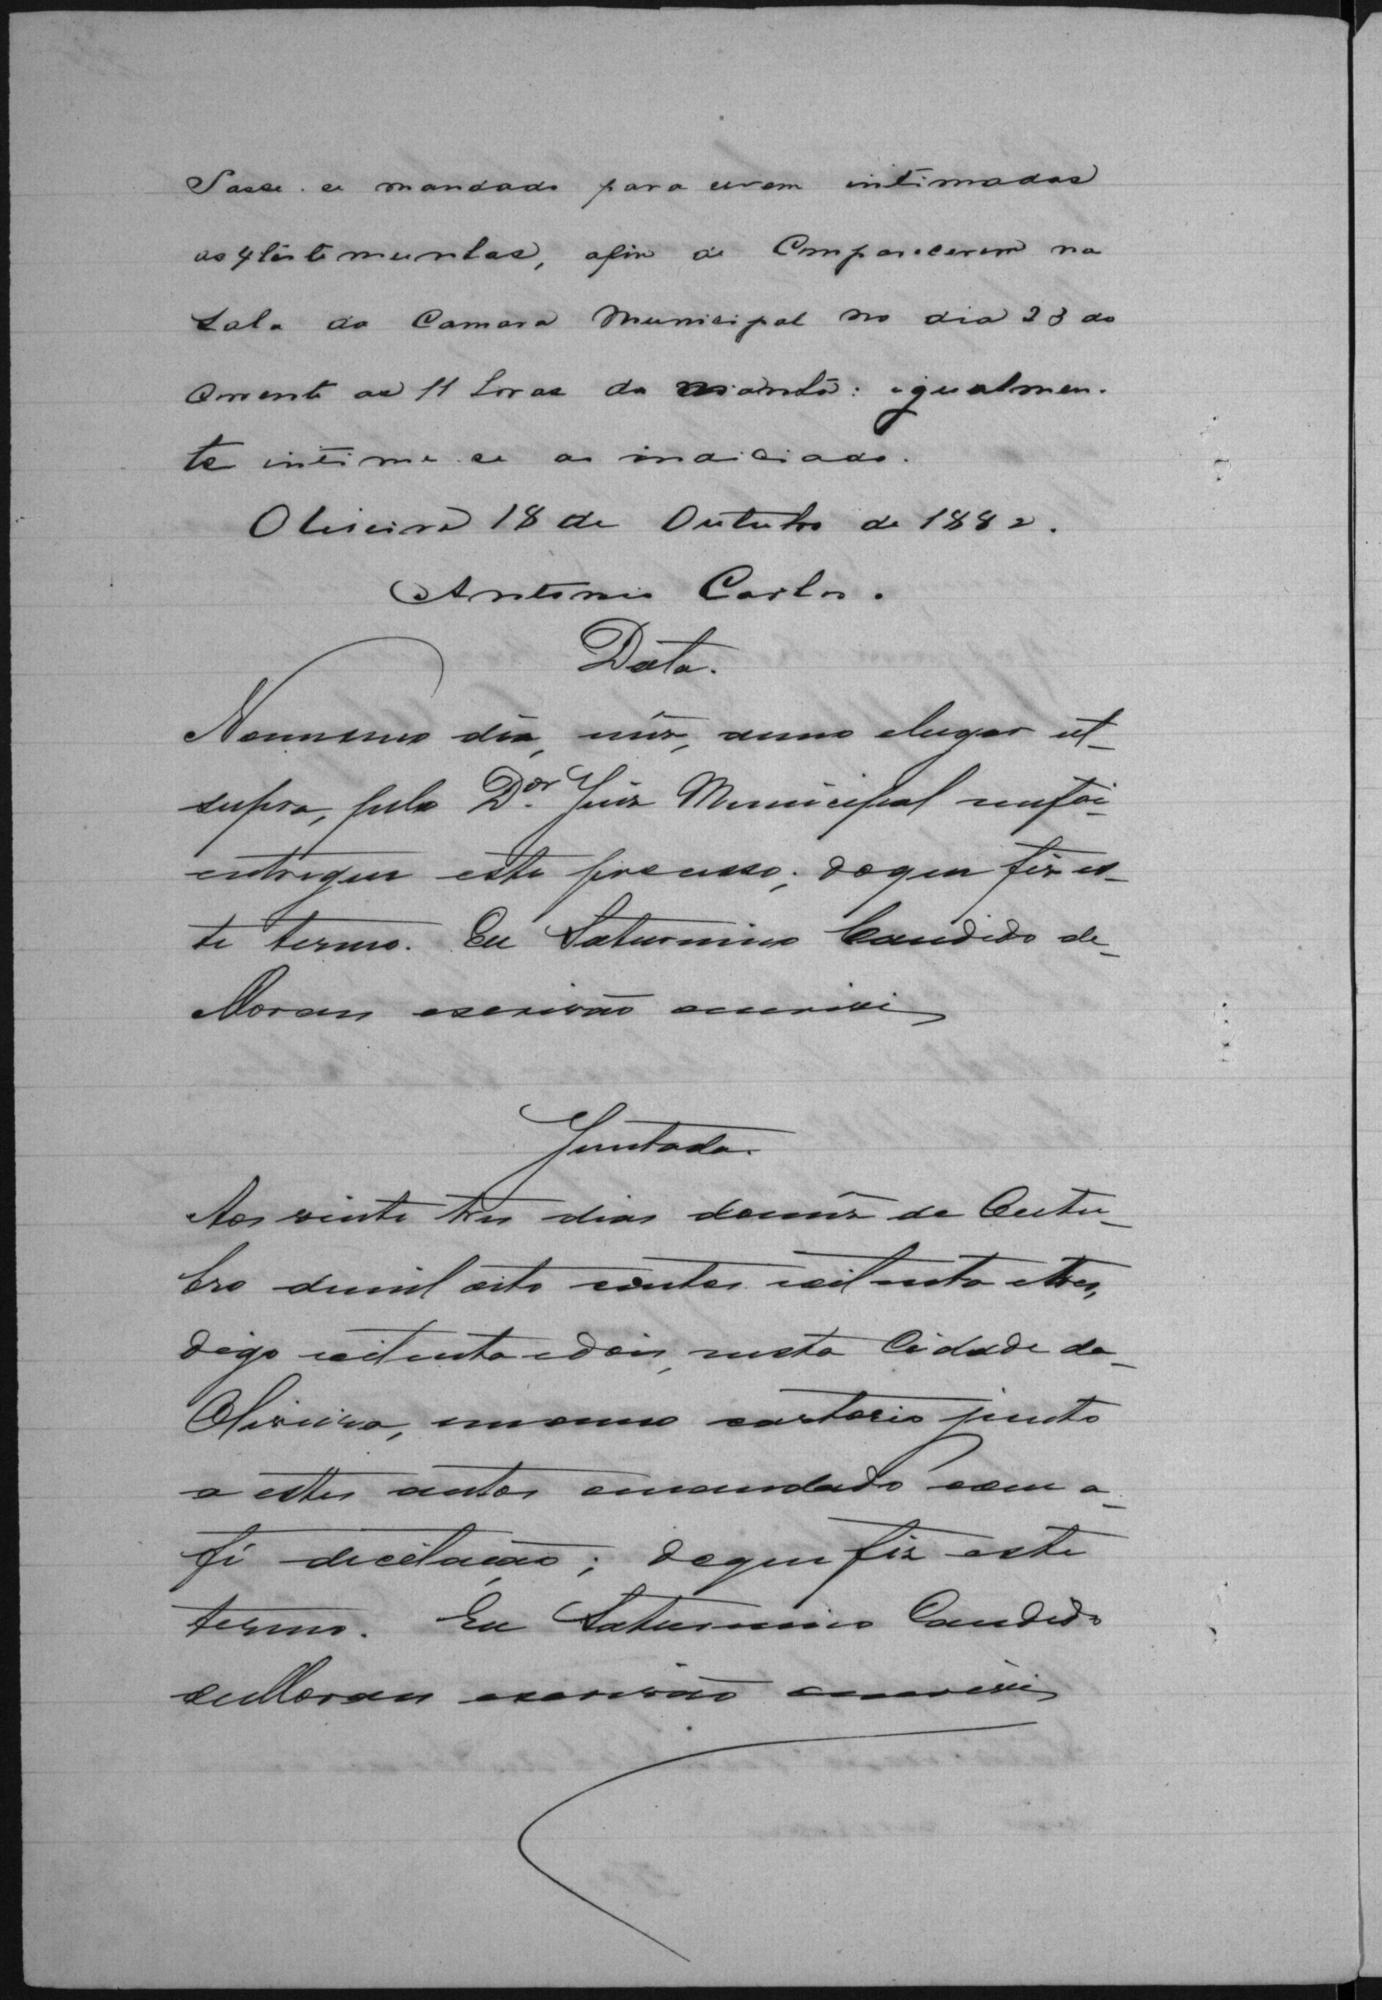 Passe-se mandado para serem intimadas
as 4 testemunhas, afim de comparecerem na
sala da Camara Municipal no dia 23 do
corrente as 11 horas da manhã: igualmen-
te intime-se ao indiciado.
Oliveira 18 de Outubro de 1882.
Antonio Carlos.
Data.
No mesmo dia, mez, anno e lugar ut-
supra, pelo Dor. Juiz Municipal me foi
entregue este processo; do que fiz es-
te termo. Eu Saturnino Candido de
Moraes escrivão o escrivi
Juntada.
Aos vinte tres dias do mez de Outu-
bro de mil oito centos e oitenta e tres,
digo oitenta e dois, nesta Cidade da
Oliveira, em meo cartorio junto
a estes autos o mandado com a
fé de citação; do que fiz este
termo. Eu Saturnino Candido
de Moraes escrivão o escrivi